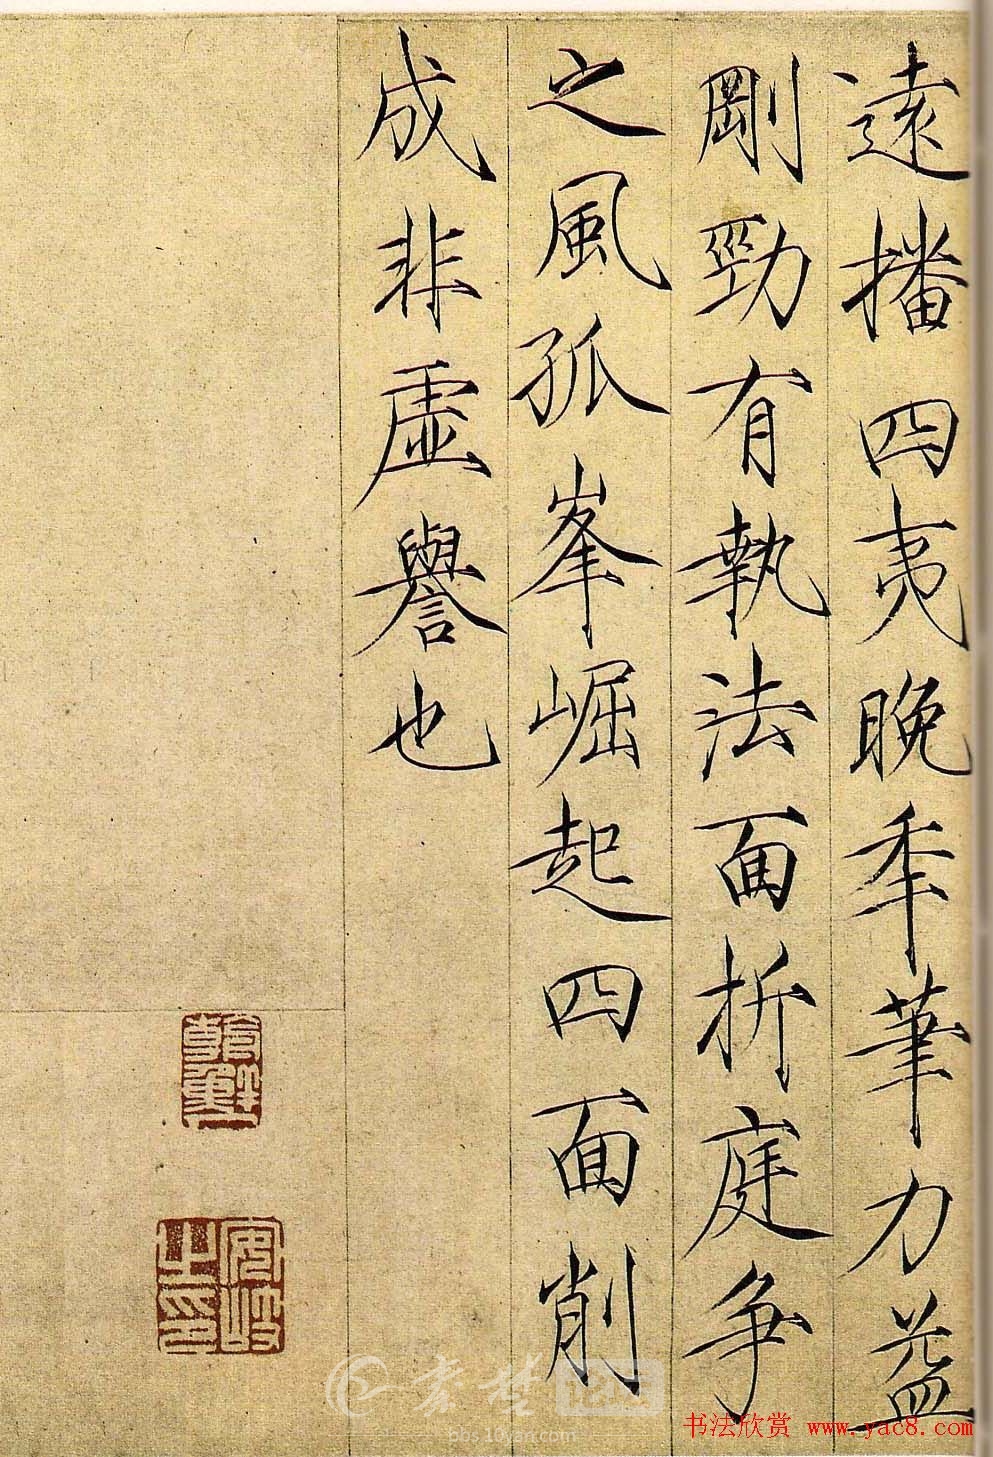 遠播四夷晚季筆力益
剛勁有執法面折庭爭
之風孤峯崛起四面削
成非虛譽也
安岐之印
书法欣赏 www.yac8.com